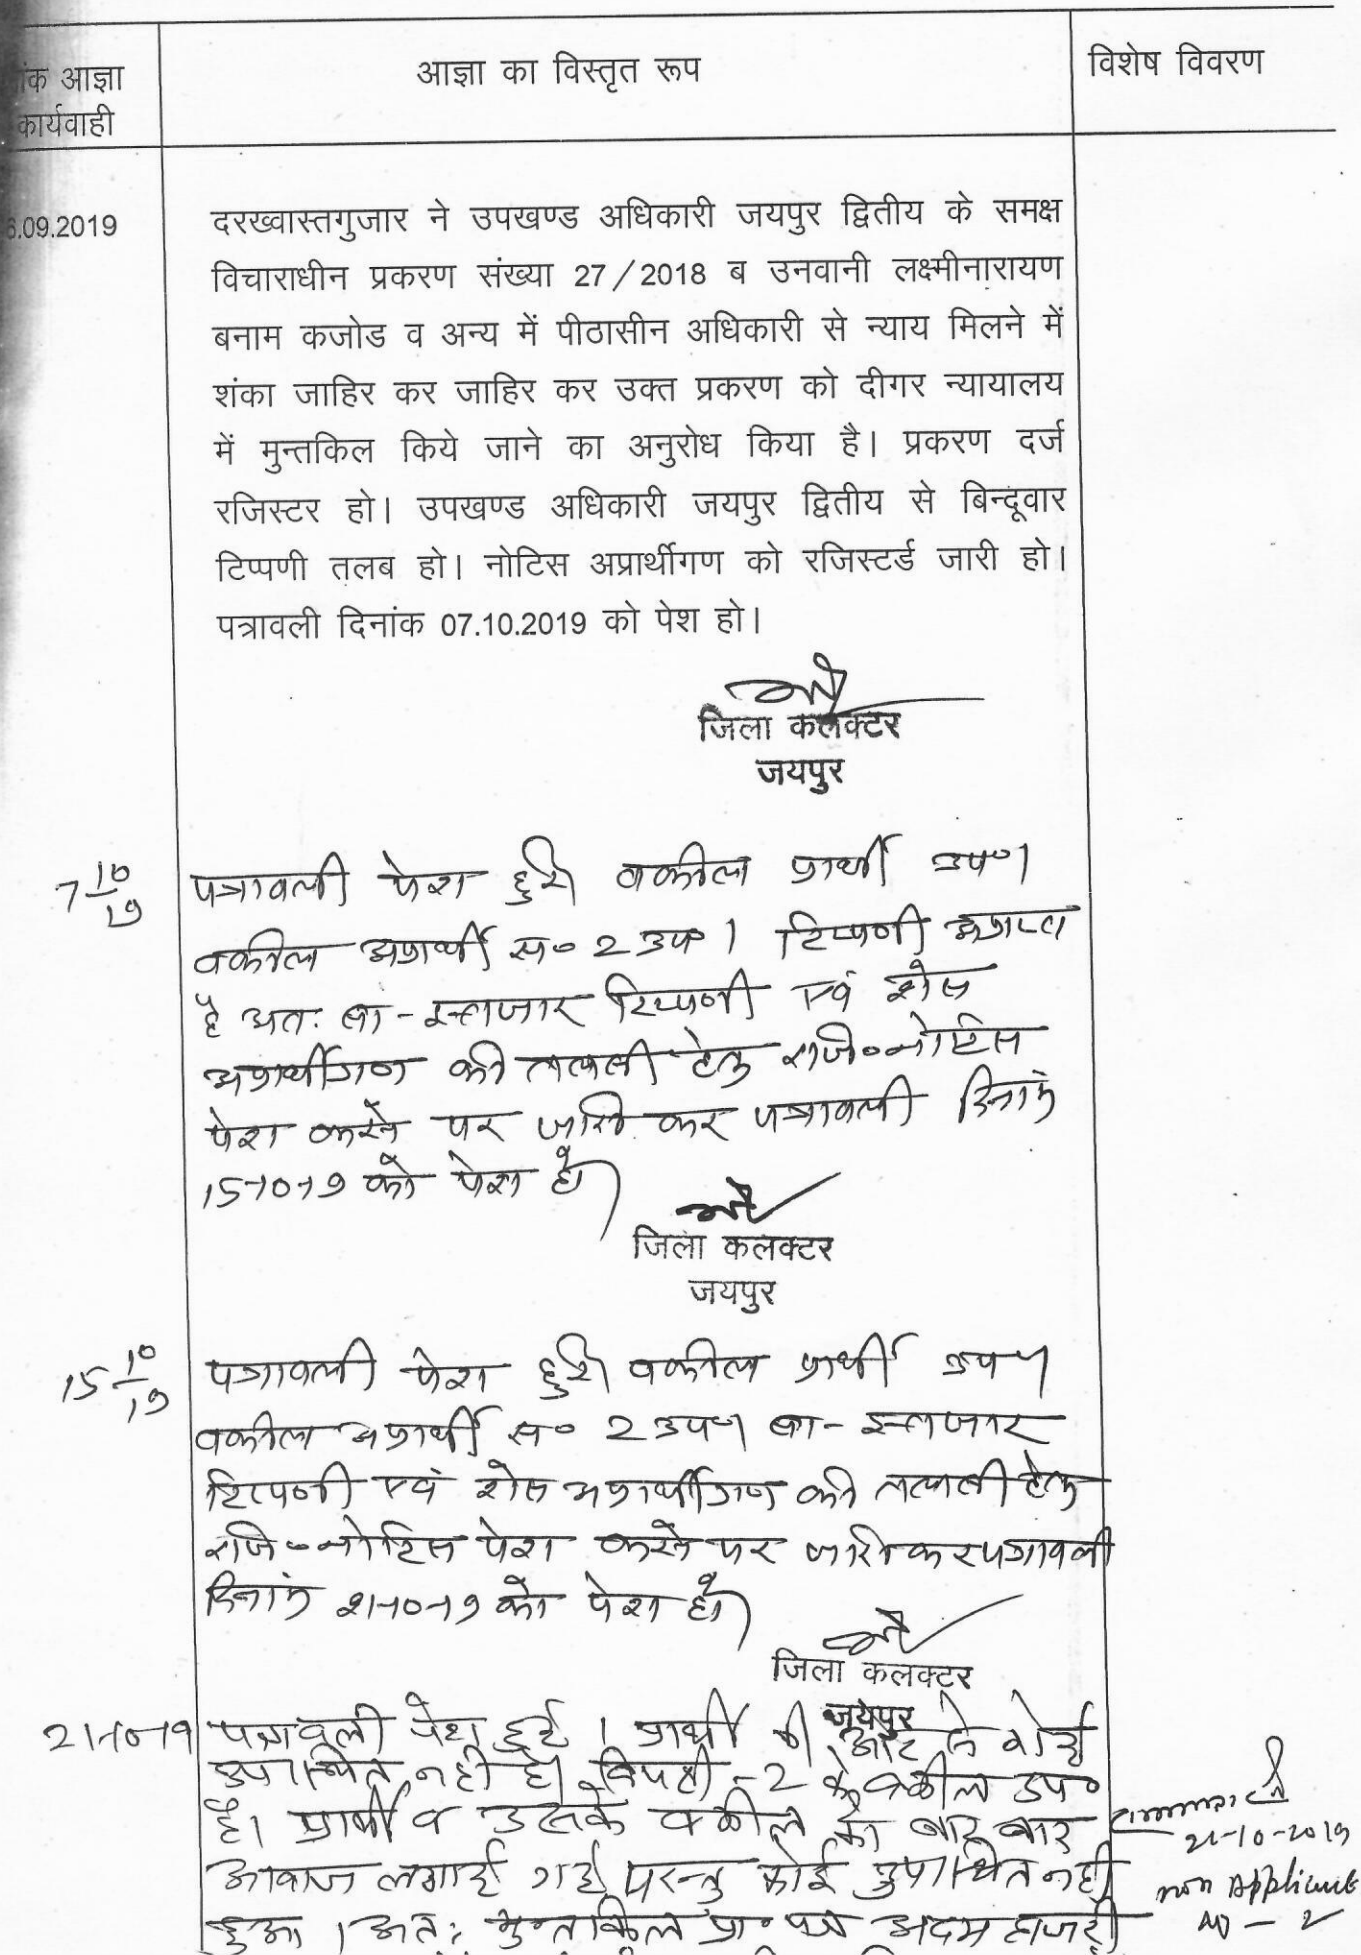 क आज्ञा
कार्यवाही
आज्ञा का विस्तृत रूप
विशेष विवरण
.09.2019
दरख्वास्तगुजार ने उपखण्ड अधिकारी जयपुर द्वितीय के समक्ष
विचाराधीन प्रकरण संख्या 27/2018 ब उनवानी लक्ष्मीनारायण
बनाम कजोड व अन्य में पीठासीन अधिकारी से न्याय मिलने में
शंका जाहिर कर जाहिर कर उक्त प्रकरण को दीगर न्यायालय
में मुन्तकिल किये जाने का अनुरोध किया है। प्रकरण दर्ज
रजिस्टर हो। उपखण्ड अधिकारी जयपुर द्वितीय से बिन्दूवार
टिप्पणी तलब हो। नोटिस अप्रार्थीगण को रजिस्टर्ड जारी हो।
पत्रावली दिनांक 07.10.2019 को पेश हो।
जिला कलक्टर
जयपुर
7 10/19
पत्रावली पेश हुई। वकील प्रार्थी उप०।
वकील अप्रार्थी स० 2 उप०। टिप्पणी अप्राप्त
है अतः बा-इन्तजार टिप्पणी एवं शेष
अप्रार्थीगण की तलबी हेतु रजि० नोटिस
पेश करने पर जारी कर पत्रावली दिनांक
15-10-19 को पेश हो।
जिला कलक्टर
जयपुर
15 10/19
पत्रावली पेश हुई। वकील प्रार्थी उप०।
वकील अप्रार्थी स० 2 उप०। बा-इन्तजार
टिप्पणी एवं शेष अप्रार्थीगण की तलबी हेतु
रजि० नोटिस पेश करने पर जारी कर पत्रावली
दिनांक 21-10-19 को पेश हो।
जिला कलक्टर
जयपुर
21-10-19
पत्रावली पेश हुई। प्रार्थी की ओर से कोई
उपस्थित नहीं है। विपक्षी-2 के वकील उप०
है। प्रार्थी व उसके वकील को बार बार
आवाज लगाई गई परन्तु कोई उपस्थित नहीं
हुआ। अतः मुन्तकिल प्रा० पत्र अदम हाजरी
21-10-2019
non Applicant
No - 2